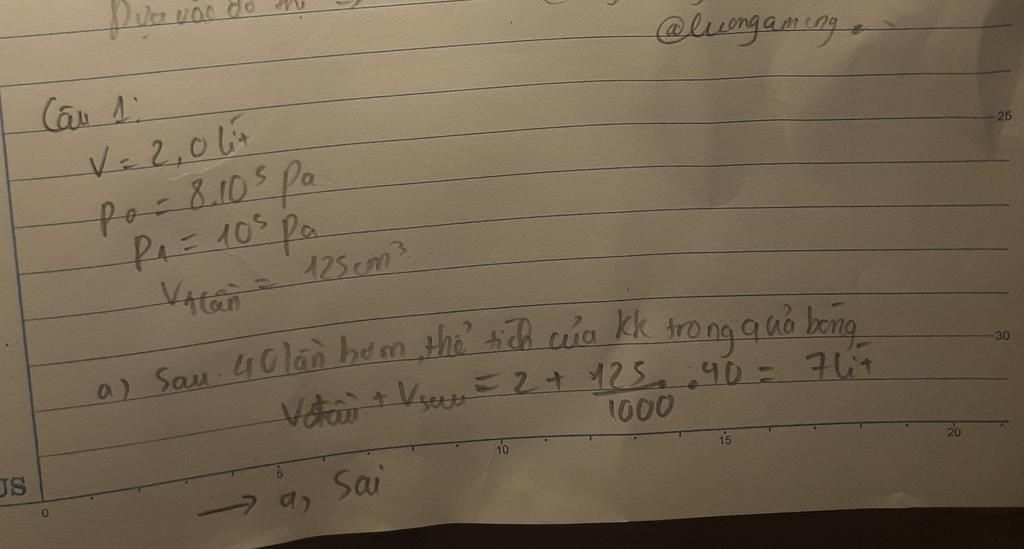 Dựa vào đồ thị
@luongaming.
Câu 1:
V = 2,0 lít
P₀ = 8.10⁵ Pa
P₁ = 10⁵ Pa
V₁lần = 125 cm³
a) Sau 40 lần bơm, thể tích của kk trong quả bóng
+ Vsau = 2 + 125/1000 . 40 = 7 lít
→ a, Sai
25
30
0 5 10 15 20
US